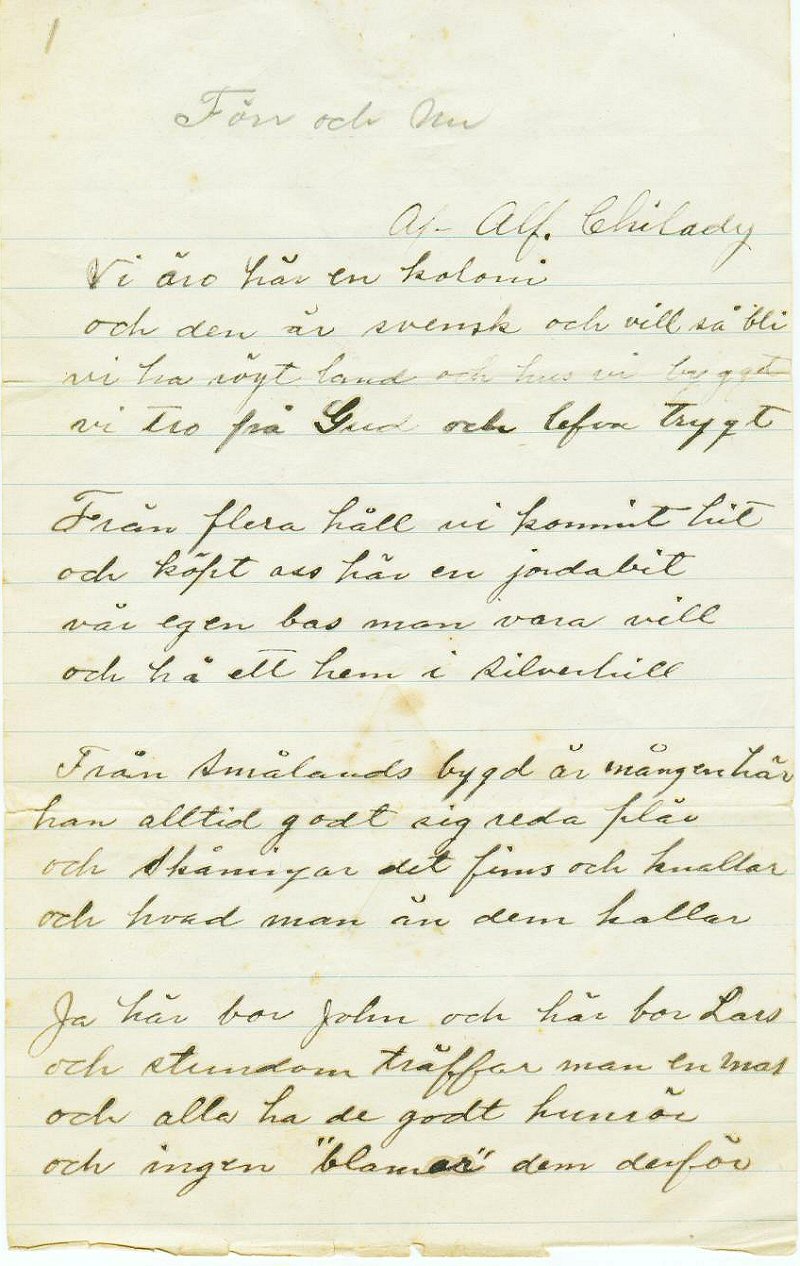 1
Förr och Nu
Af Alf. Chilady
Vi äro här en koloni
och den är svensk och vill så bli
vi ha röyt land och hus vi bygget
vi tro på Gud och lefva trygt
Från flera håll vi kommit hit
och köpt oss här en jordabit
vår egen bas man vara vill
och hå ett hem i Silverhill
Från Smålands bygd är mången här
han alltid godt sig reda plär
och Skåningar det finns och knallar
och hvad man än dem kallar
Ja här bor John och här bor Lars
och stundom träffar man en mas
och alla ha de godt humör
och ingen "blamer" dem derför